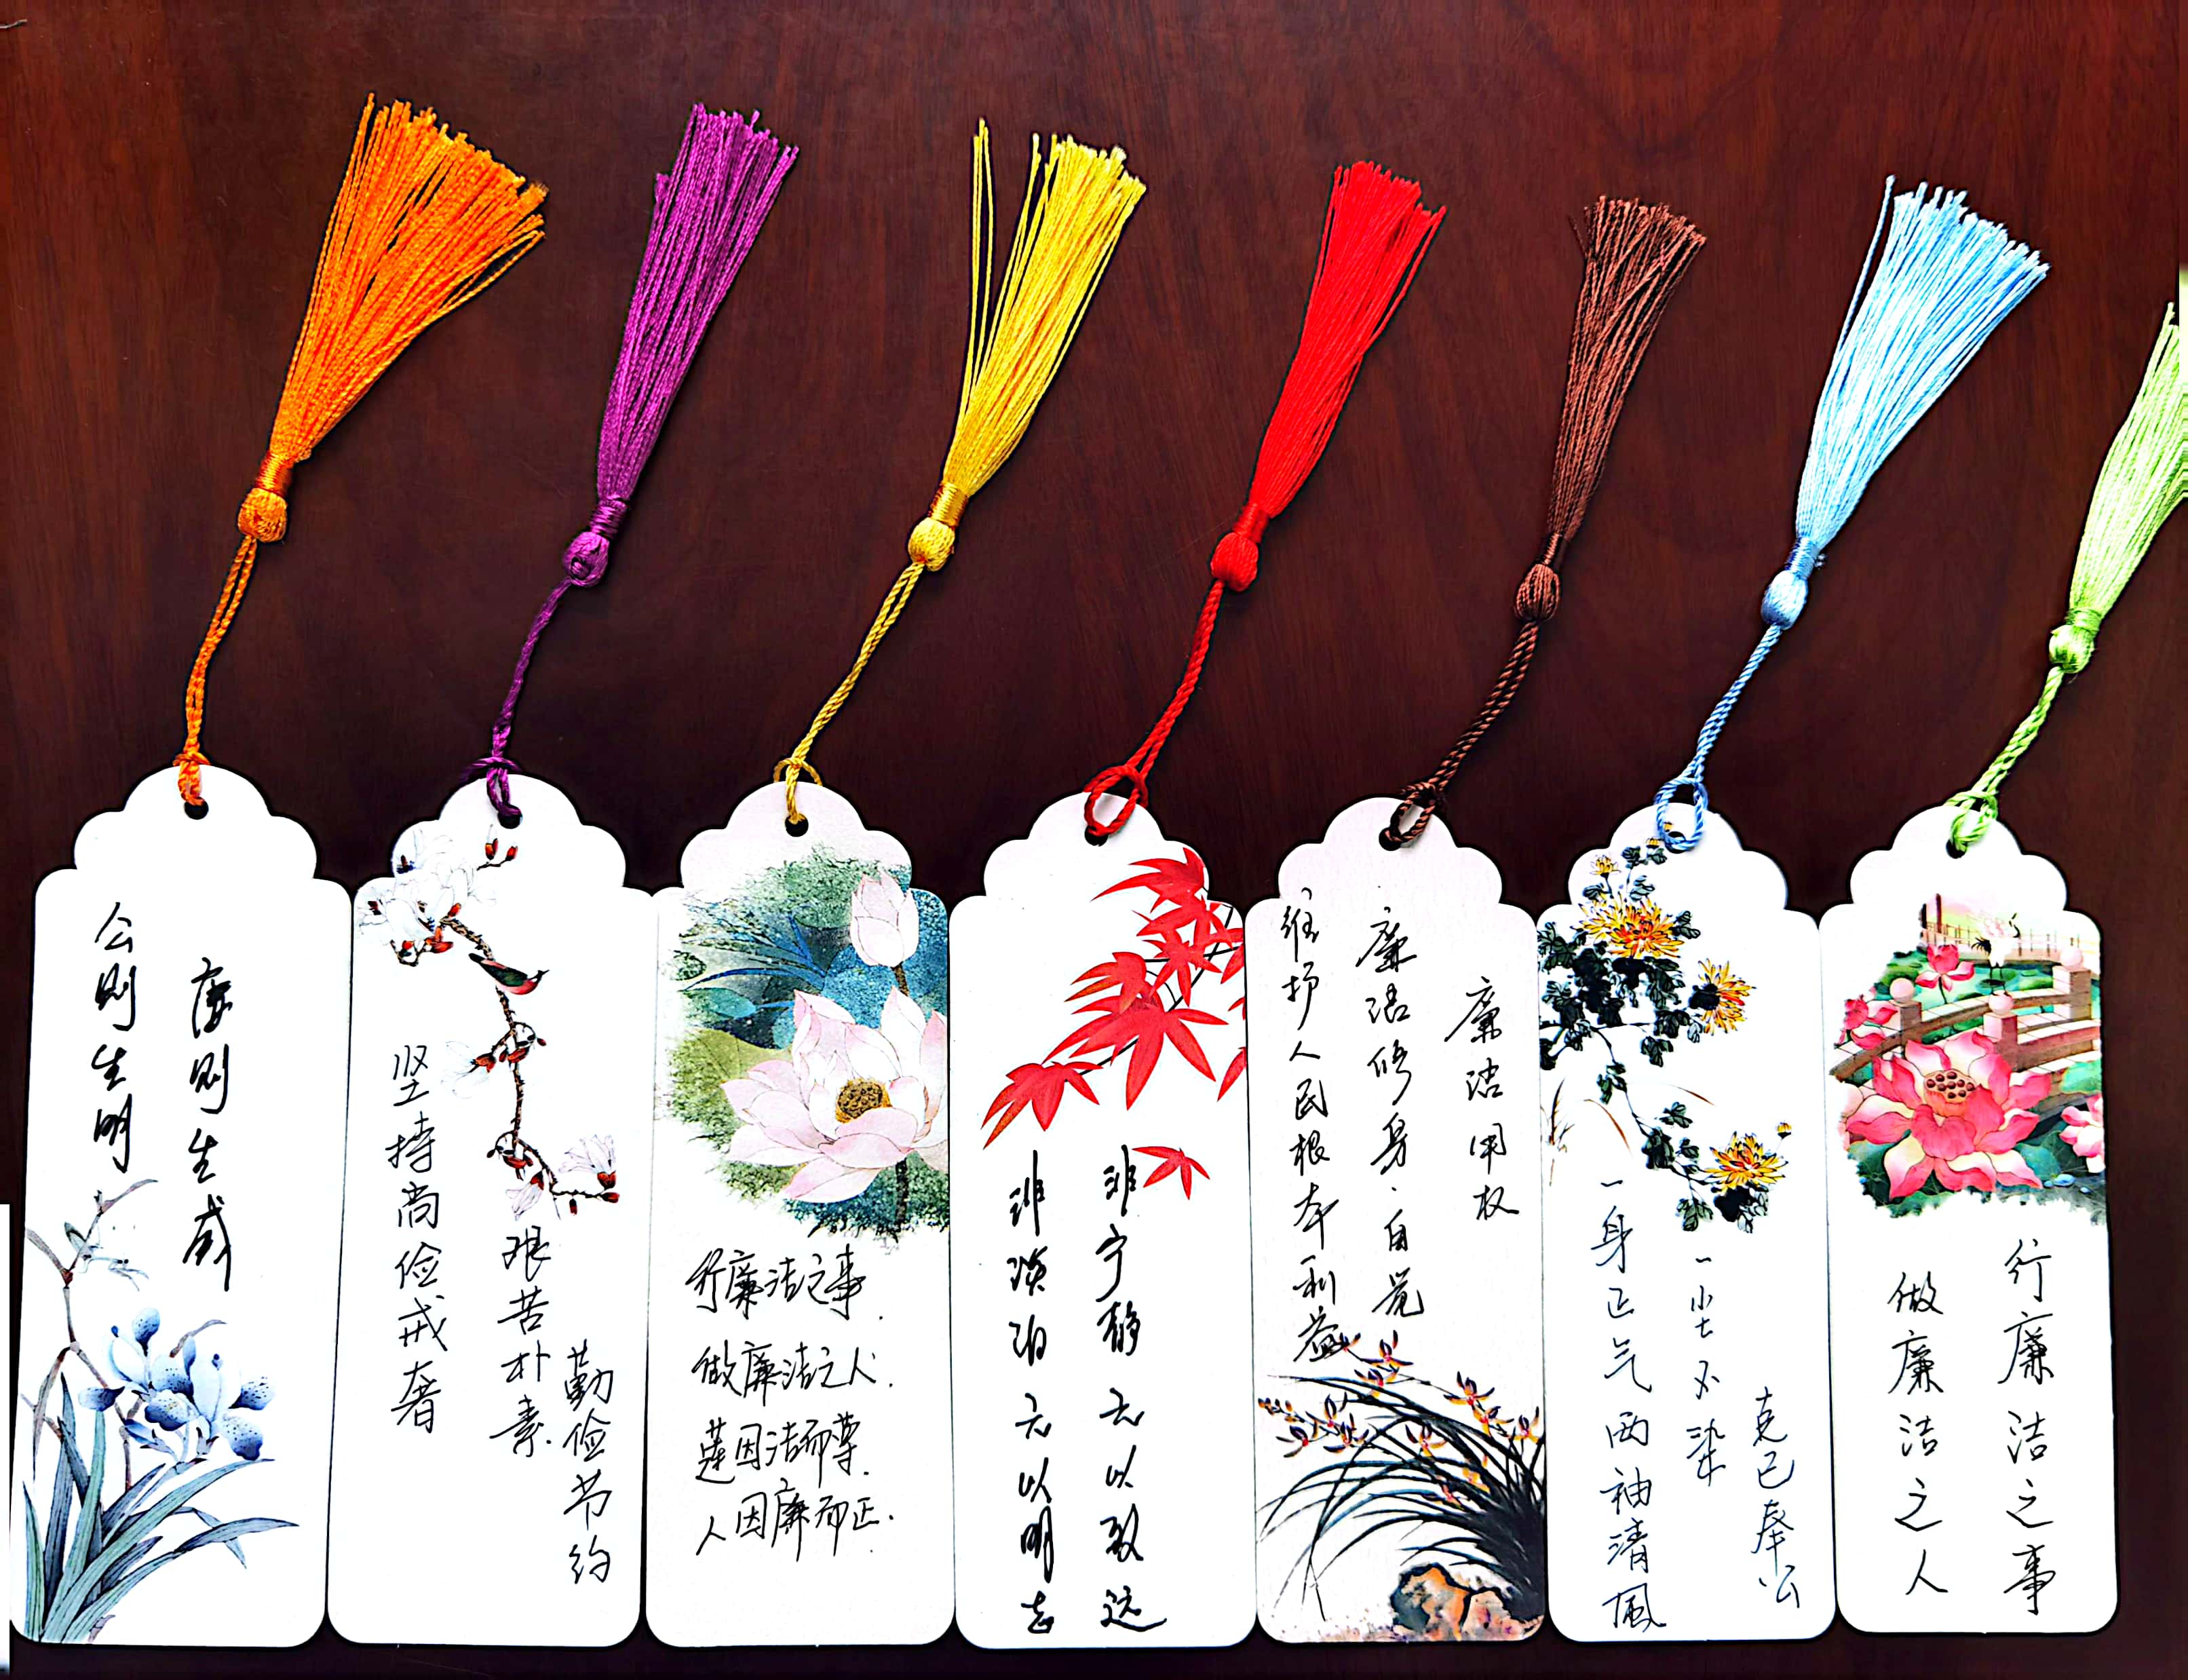 公则生明
廉则生威
勤俭节约
艰苦朴素.
坚持尚俭戒奢
行廉洁之事.
做廉洁之人.
莲因洁而尊.
人因廉而正.
非淡泊无以明志
非宁静无以致远
廉洁用权
廉洁修身.自觉
维护人民根本利益
克己奉公
一尘不染
一身正气两袖清风
行廉洁之事
做廉洁之人